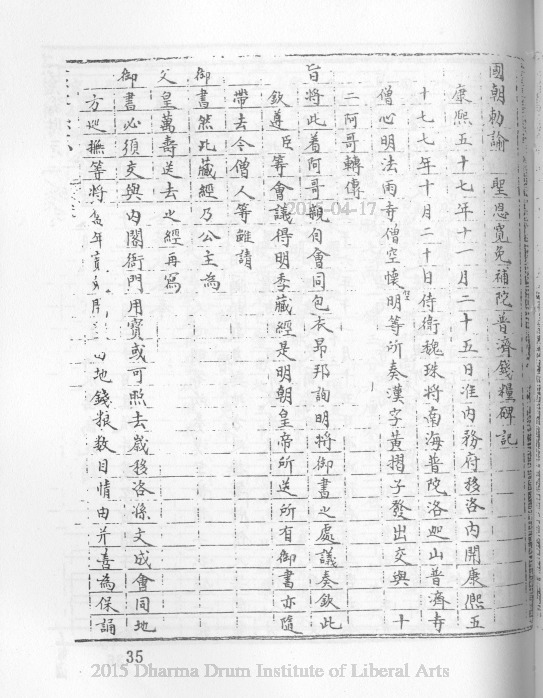 國朝勅諭　聖恩寬免補陀普濟錢糧碑記
康熙五十七年十一月二十五日准內務府移洛內開康熙五
十七七年十月二十日侍衛魏珠將南海普陀洛迦山普濟寺
僧心明法雨寺僧空懷明等所奏漢字黃摺子發出交與　十
二阿哥轉傳
旨將此着阿哥觀旬會同包衣昂邦詢明將御書之處議奏欽此
欽遵臣等會議得明季藏經是明朝皇帝所送所有御書亦隨
帶去令僧人等雖請
御書然此藏經乃公主為
父皇萬壽送去之經再寫
御書必須交與內閣衙門用寶或可照去歲移洛孫文成會同地
方巡撫等將 年 地錢粮数目情由并善為保誦
2015-04-17
35
2015 Dharma Drum Institute of Liberal Arts